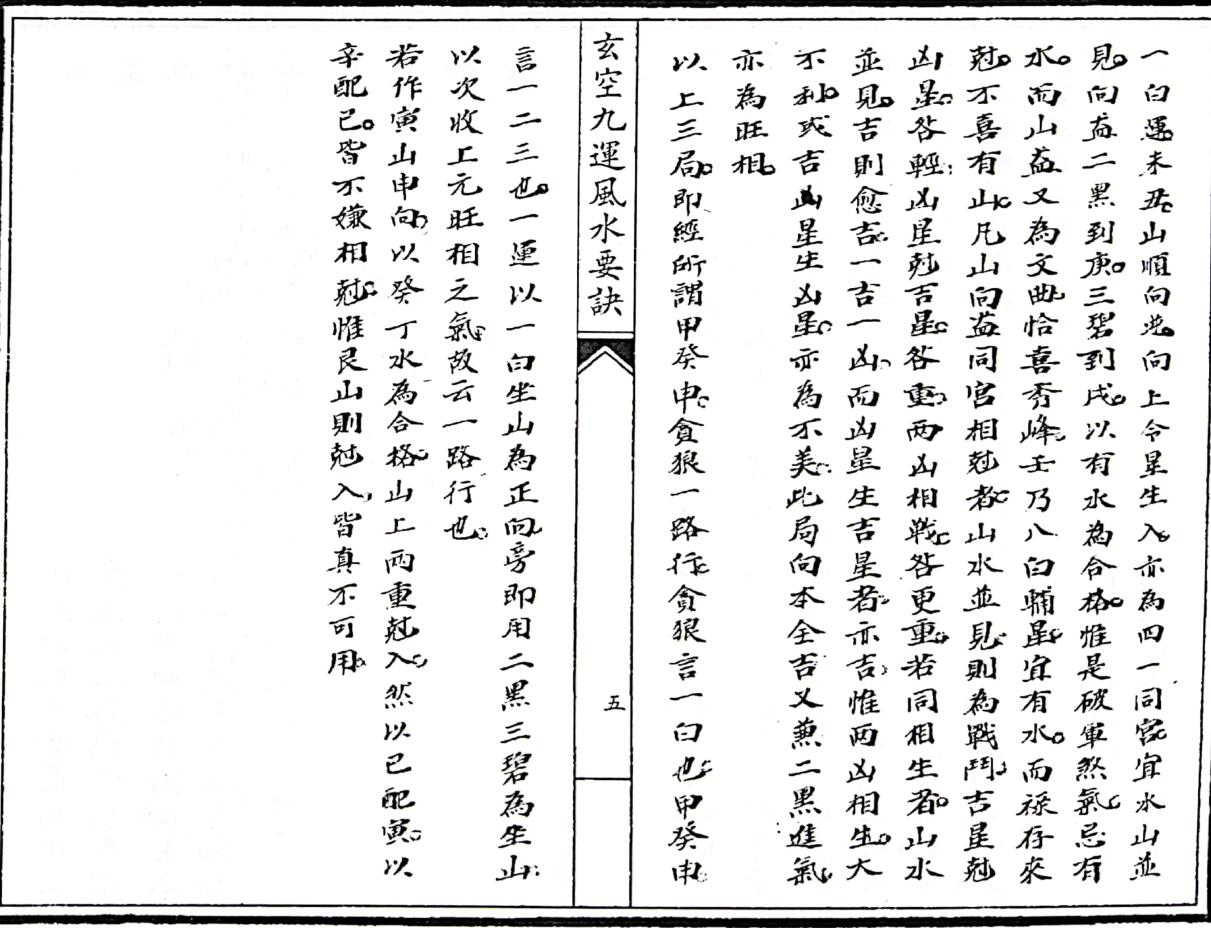 一白運未丑山順向逆向上令星生入亦為四一同宮宜水山並
見向盤二黑到庚三碧到戌以有水為合格惟是破軍煞氣忌有
水而山盤又為文曲恰喜秀峰壬乃八白輔星宜有水而祿存來
尅不喜有山凡山向盤同宮相尅者山水並見則為戰鬥吉星尅
凶星咎輕凶星尅吉星咎重兩凶相戰咎更重若同相生者山水
並見吉則愈吉一吉一凶而凶星生吉星者亦吉惟兩凶相生大
不利或吉凶星生凶星亦為不美此局向本全吉又兼二黑進氣
亦為旺相
以上三局即經所謂甲癸申貪狼一路行貪狼言一白也甲癸申
玄空九運風水要訣
五
言一二三也一運以一白坐山為正向旁即用二黑三碧為坐山
以次收上元旺相之氣故云一路行也
若作寅山申向以癸丁水為合格山上兩重尅入然以巳配寅以
辛配巳皆不嫌相尅惟艮山則尅入皆真不可用